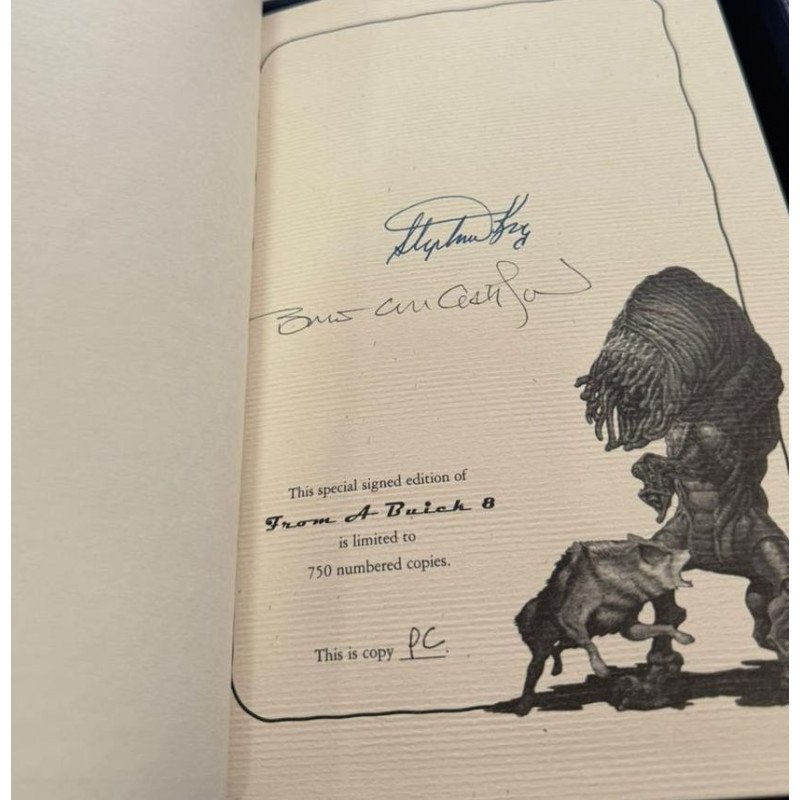 Stephen King
This special signed edition of
From A Buick 8
is limited to
750 numbered copies.
This is copy PC.